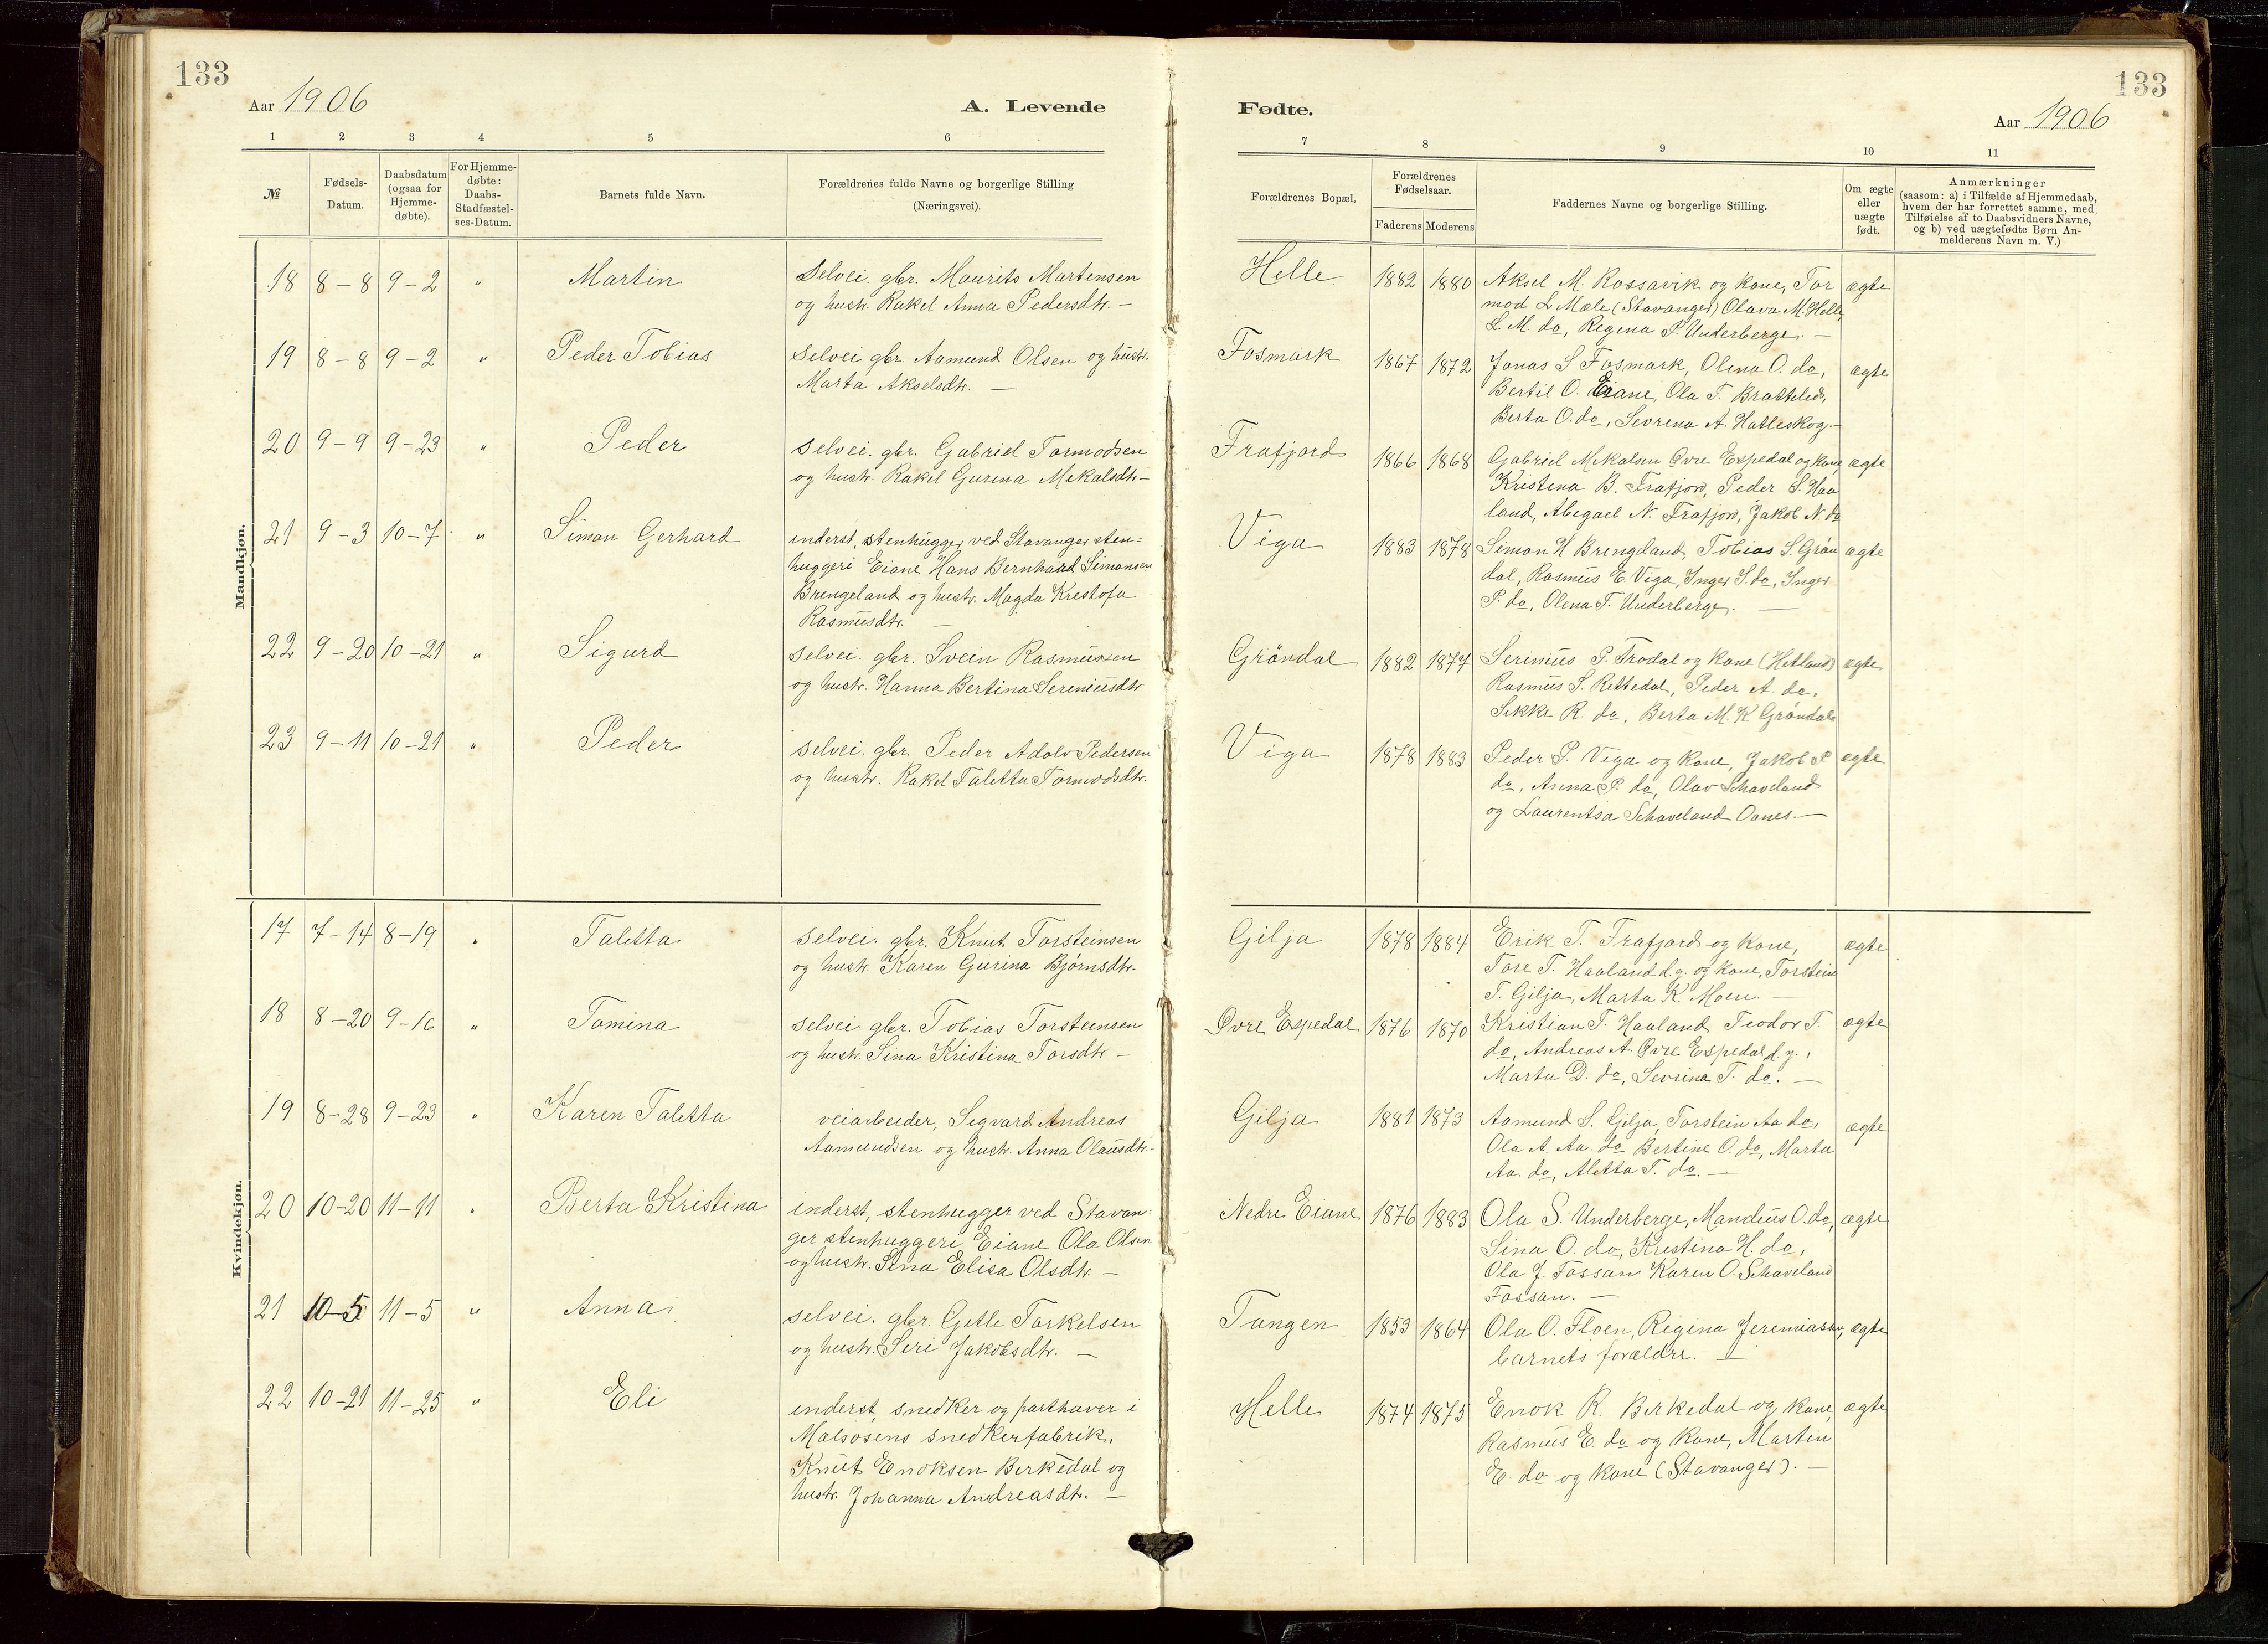 133
Aar 1906
A. Levende
1 2 3 4 5 6
№
Fødsels-
Datum.
Daabsdatum
(ogsaa for
Hjemme-
døbte).
For Hjemme-
døbte:
Daabs-
Stadfæstel-
ses-Datum.
Barnets fulde Navn.
Forældrenes fulde Navne og borgerlige Stilling
(Næringsvei).
Mandkjøn.
18 8-8 9-2 " Martin selvei. gbr. Maurits Martensen
og hustr. Rakel Anna Pedersdtr. —
19 8-8 9-2 " Peder Tobias selvei gbr. Aamund Olsen og hustr.
Marta Akselsdtr. —
20 9-9 9-23 " Peder selvei. gbr. Gabriel Tormodsen
og hustr. Rakel Gurina Mikalsdtr —
21 9-3 10-7 " Simon Gerhard inderst, stenhugger ved Stavanger sten=
huggeri Eiane Hans Bernhard Simonsen
Brengeland og hustr. Magda Kristofa
Rasmusdtr. —
22 9-20 10-21 " Sigurd selvei. gbr. Svein Rasmussen
og hustr. Hanna Bertina Sereniusdtr
23 9-11 10-21 " Peder selvei. gbr. Peder Adolv Pedersen
og hustr. Rakel Taletta Tormodsdtr.
Kvindekjøn.
17 7-14 8-19 " Taletta selvei. gbr. Knut Torsteinsen
og hustr. Karen Gurina Bjørnsdtr.
18 8-20 9-16 " Tomina selvei. gbr. Tobias Torsteinsen
og hustr. Sina Kristina Torsdtr —
19 8-28 9-23 " Karen Taletta veiarbeider, Sigvard Andreas
Aamundsen og hustr. Anna Olausdtr. —
20 10-20 11-11 " Berta Kristina inderst, stenhugger ved Stavan-
ger stenhuggeri Eiane Ola Olsen
og hustr. Sina Elisa Olsdtr. —
21 10-5 11-5 " Anna selvei. gbr. Gitle Torkelsen
og hustr. Siri Jakobsdtr. —
22 10-21 11-25 " Eli inderst, snedker og parthaver i
Malsosens snedkerfabrik,
Knut Enoksen Birkedal og
hustr. Johanna Andreasdtr. —
133
Fødte.
Aar 1906
7 8 9 10 11
Forældrenes Bopæl.
Forældrenes
Fødselsaar.
Faderens Moderens
Faddernes Navne og borgerlige Stilling.
Om ægte
eller
uægte
født.
Anmærkninger
(saasom: a) i Tilfælde af Hjemmedaab,
hvem der har forrettet samme, med
Tilføielse af to Daabsvidners Navne,
og b) ved uægtefødte Børn An-
melderens Navn m. V.)
Helle 1882 1880 Aksel M. Rossavik og kone, Tor ægte
mod L Mæle (Stavanger) Olava M. Helle,
L. M. do, Regina P. Underberge. —
Fosmark 1867 1872 Jonas S Fosmark, Olena O. do, ægte
Bertil O. Eiane, Ola T. Bratteled,
Berta O. do, Sevrena A. Hatleskog. —
Frafjord 1866 1868 Gabriel Mikalsen Øvre Espedal og kone, ægte
Kristena B. Frafjord, Peder S. Haa
land, Abegael N. Frafjord, Jakob N. do
Viga 1883 1878 Simon H Brengeland, Tobias S. Grøn ægte
dal, Rasmus E. Viga, Inger S. do, Inger
P. do, Olena T. Underberge. —
Grøndal 1882 1877 Serinius P. Trodal og kone (Hetland) ægte
Rasmus S. Rettedal, Peder A. do.
Sikke R. do, Berta M. K Grøndal
Viga 1878 1883 Peder P. Viga og kone, Jakob P ægte
do, Anna P. do, Olav Schaveland
og Laurentsa Schaveland Oanes. —
Gilja 1878 1884 Erik T. Frafjord og kone, ægte
Tore T. Haaland d.y. og kone, Torstein
T. Gilja, Marta K. Moen. —
Øvre Espedal 1876 1870 Kristian T. Haaland Teodor T. ægte
do, Andreas A. Øvre Espedal d.y.,
Marta D. do, Sevrina T. do. —
Gilja 1881 1873 Aamund S. Gilja, Torstein Aa do, ægte
Ola A. Aa. do Bertine O. do, Marta
Aa. do, Aletta T. do. —
Nedre Eiane 1876 1883 Ola S. Underberge, Mandius O. do, ægte
Sina O. do, Kristina H. do,
Ola J. Fossan Karen O. Schaveland
Fossan. —
Tangen 1853 1864 Ola O. Floen, Regina Jeremiasen, ægte
barnets forældre. —
Helle 1874 1875 Enok R. Birkedal og kone, ægte
Rasmus E. do og kone, Martin
E. do og kone (Stavanger). —